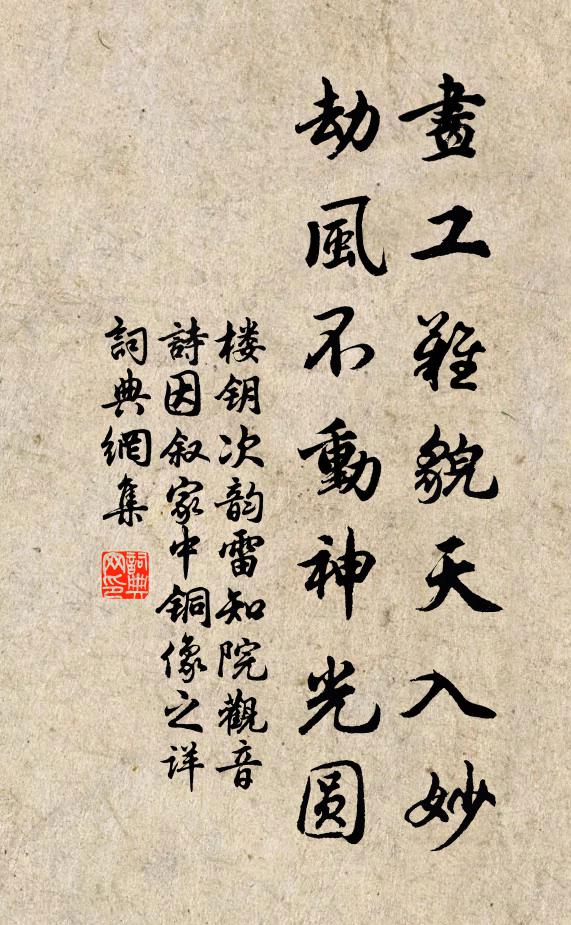 畫工難貌天入妙
劫風不動神光圓
楼钥次韵雷知院觀音
詩因叙家中铜像之详
詞典網集
詞典
网印